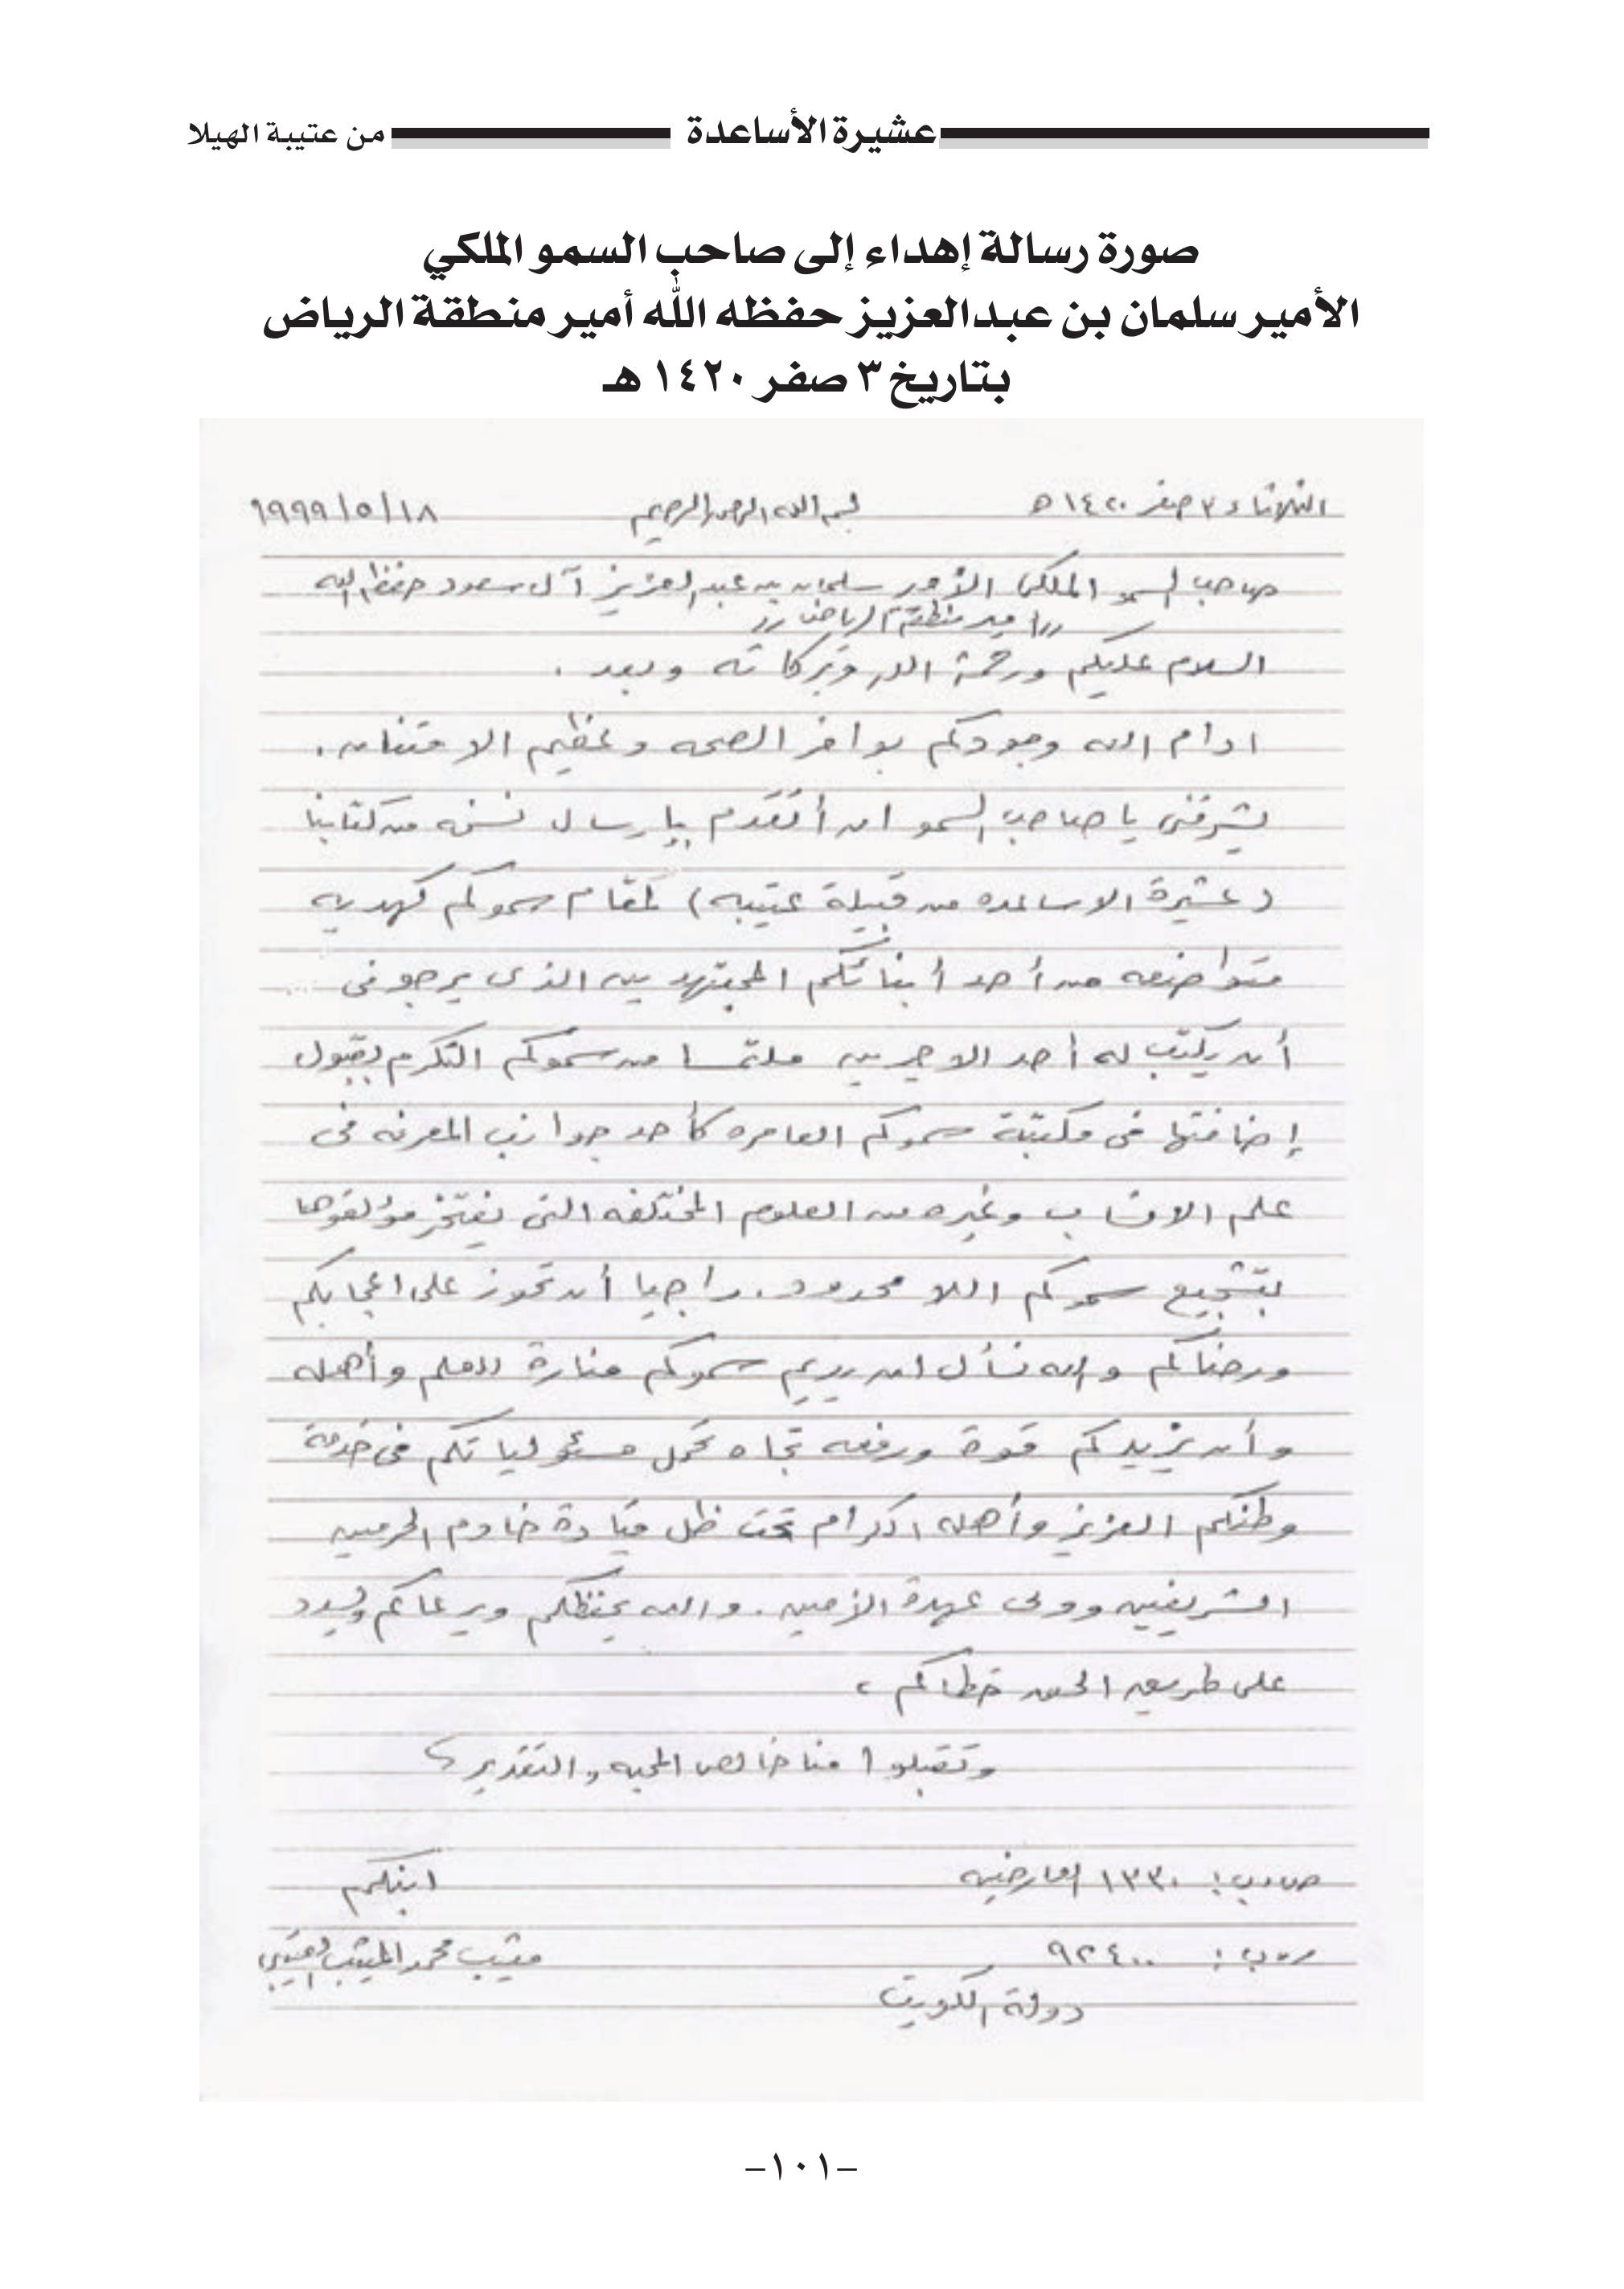 عشيرة الأساعدة من عتيبة الهيلا
صورة رسالة إهداء إلى صاحب السمو الملكي
الأمير سلمان بن عبدالعزيز حفظه الله أمير منطقة الرياض
بتاريخ ٣ صفر ١٤٢٠ هـ
الثلاثاء ٣ صفر ١٤٢٠ ه بسم الله الرحمن الرحيم ١٩٩٩/٥/١٨
صاحب السمو الملكي الأمير سلمان بن عبدالعزيز آل سعود حفظه الله
"امير منطقة الرياض"
السلام عليكم ورحمة الله وبركاته وبعد .
ادام الله وجودكم بوافر الصحه وعظيم الامتنان .
يشرفني يا صاحب السمو ان أتقدم بإرسال نسخه من كتابنا
( عشيرة الاساعده من قبيلة عتيبه ) لمقام سموكم كهديه
متواضعه من أحد أبنائكم المجتهدين الذي يرجو في ...
أن يكتب له أحد الاجرين ملتمسا من سموكم التكرم بقبول
إضافتها في مكتبة سموكم العامره كأحد جوانب المعرفه في
علم الانساب وغيره من العلوم المختلفه التي يفتخر مؤلفوها
بتشجيع سموكم اللا محدود . راجيا أن تحوز على اعجابكم
ورضاكم والله نسأل ان يديم سموكم منارة للعلم وأهله
وأن يزيدكم قوة ورفعه تجاه تحمل مسئولياتكم في خدمة
وطنكم العزيز وأهله الكرام تحت ظل قيادة خادم الحرمين
الشريفين وولي عهدة الأمين . والله يحفظكم ويرعاكم ويسدد
على طريق الحق خطاكم ،
وتقبلوا منا خالص المحبه والتقدير
ص.ب : ١٣٣٠ العارضيه ابنكم
ر.ب : ٩٢٤٠٠ متيب محمد العتيبي
دولة الكويت
-١٠١-